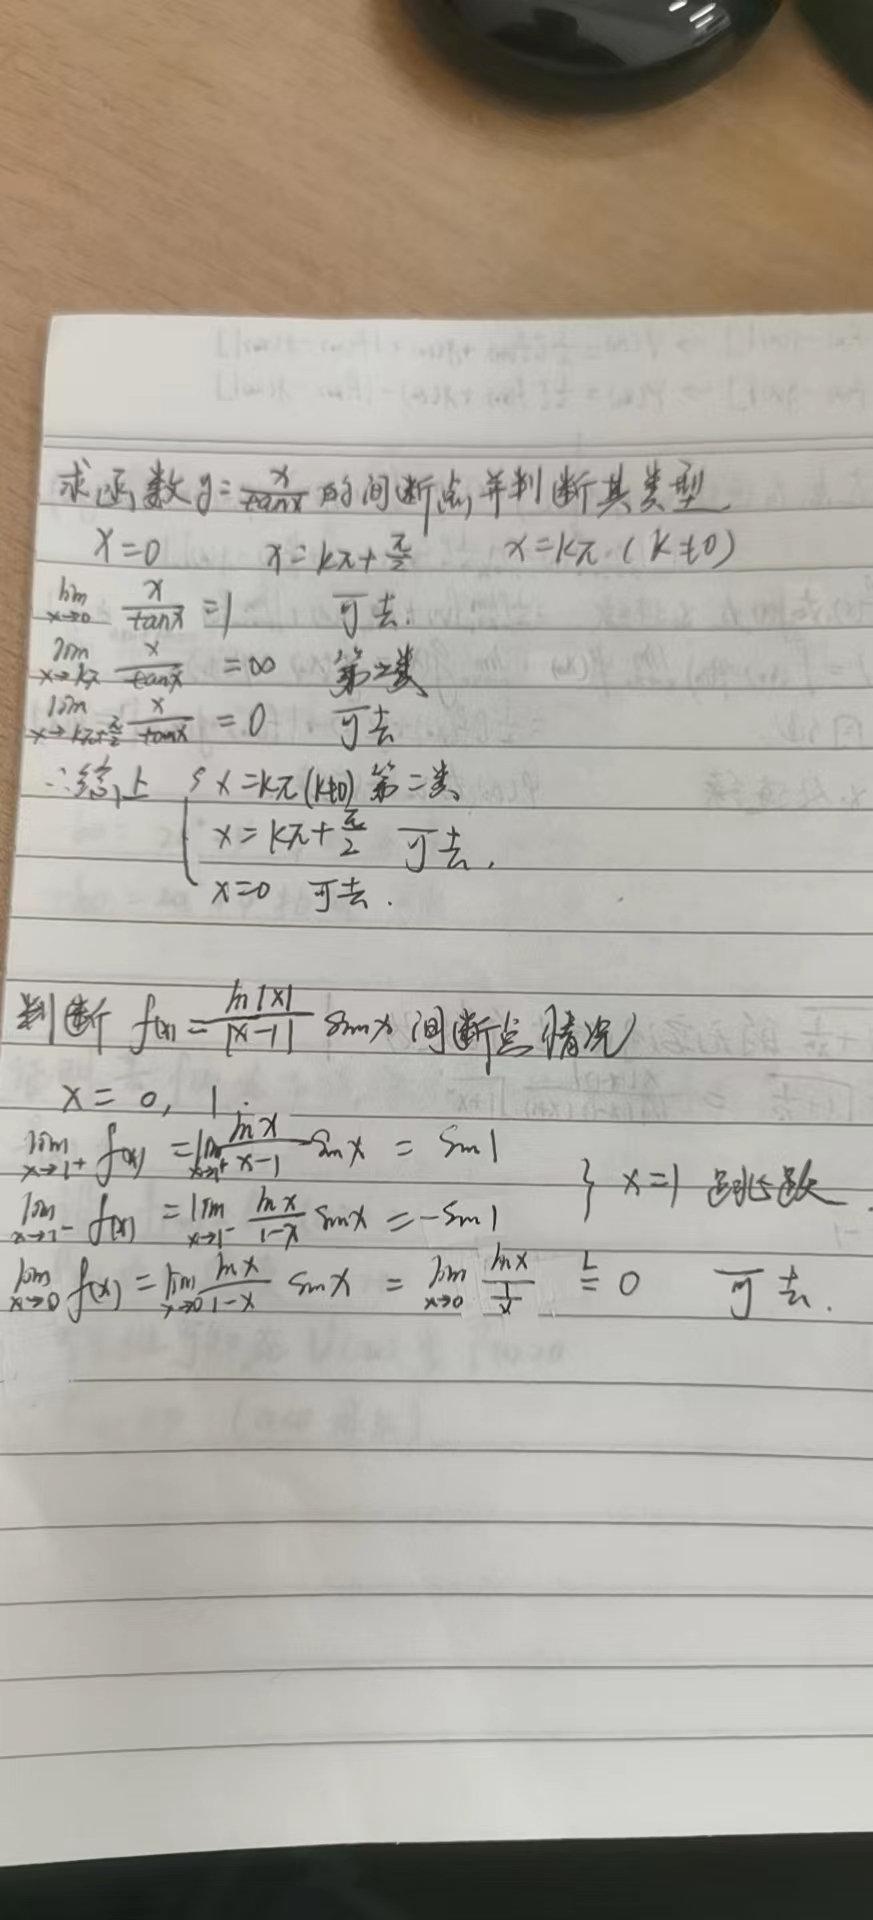 求函数 y = x/tanx 的间断点,并判断其类型
x=0 x=kπ+π/2 x=kπ.(k≠0)
lim x→0 x/tanx =1 可去.
lim x→kπ x/tanx =∞ 第二类
lim x→kπ+π/2 x/tanx =0 可去
∴综上 { x=kπ(k≠0) 第二类
x=kπ+π/2 可去.
x=0 可去.
判断 f(x)= ln|x|/|x-1| sinx 间断点情况
x=0, 1.
lim x→1+ f(x) = lim x→1+ lnx/x-1 sinx = sin1
lim x→1- f(x) = lim x→1- lnx/1-x sinx = -sin1 } x=1 跳跃.
lim x→0 f(x) = lim x→0 lnx/1-x sinx = lim x→0 lnx/(1/x) L= 0 可去.